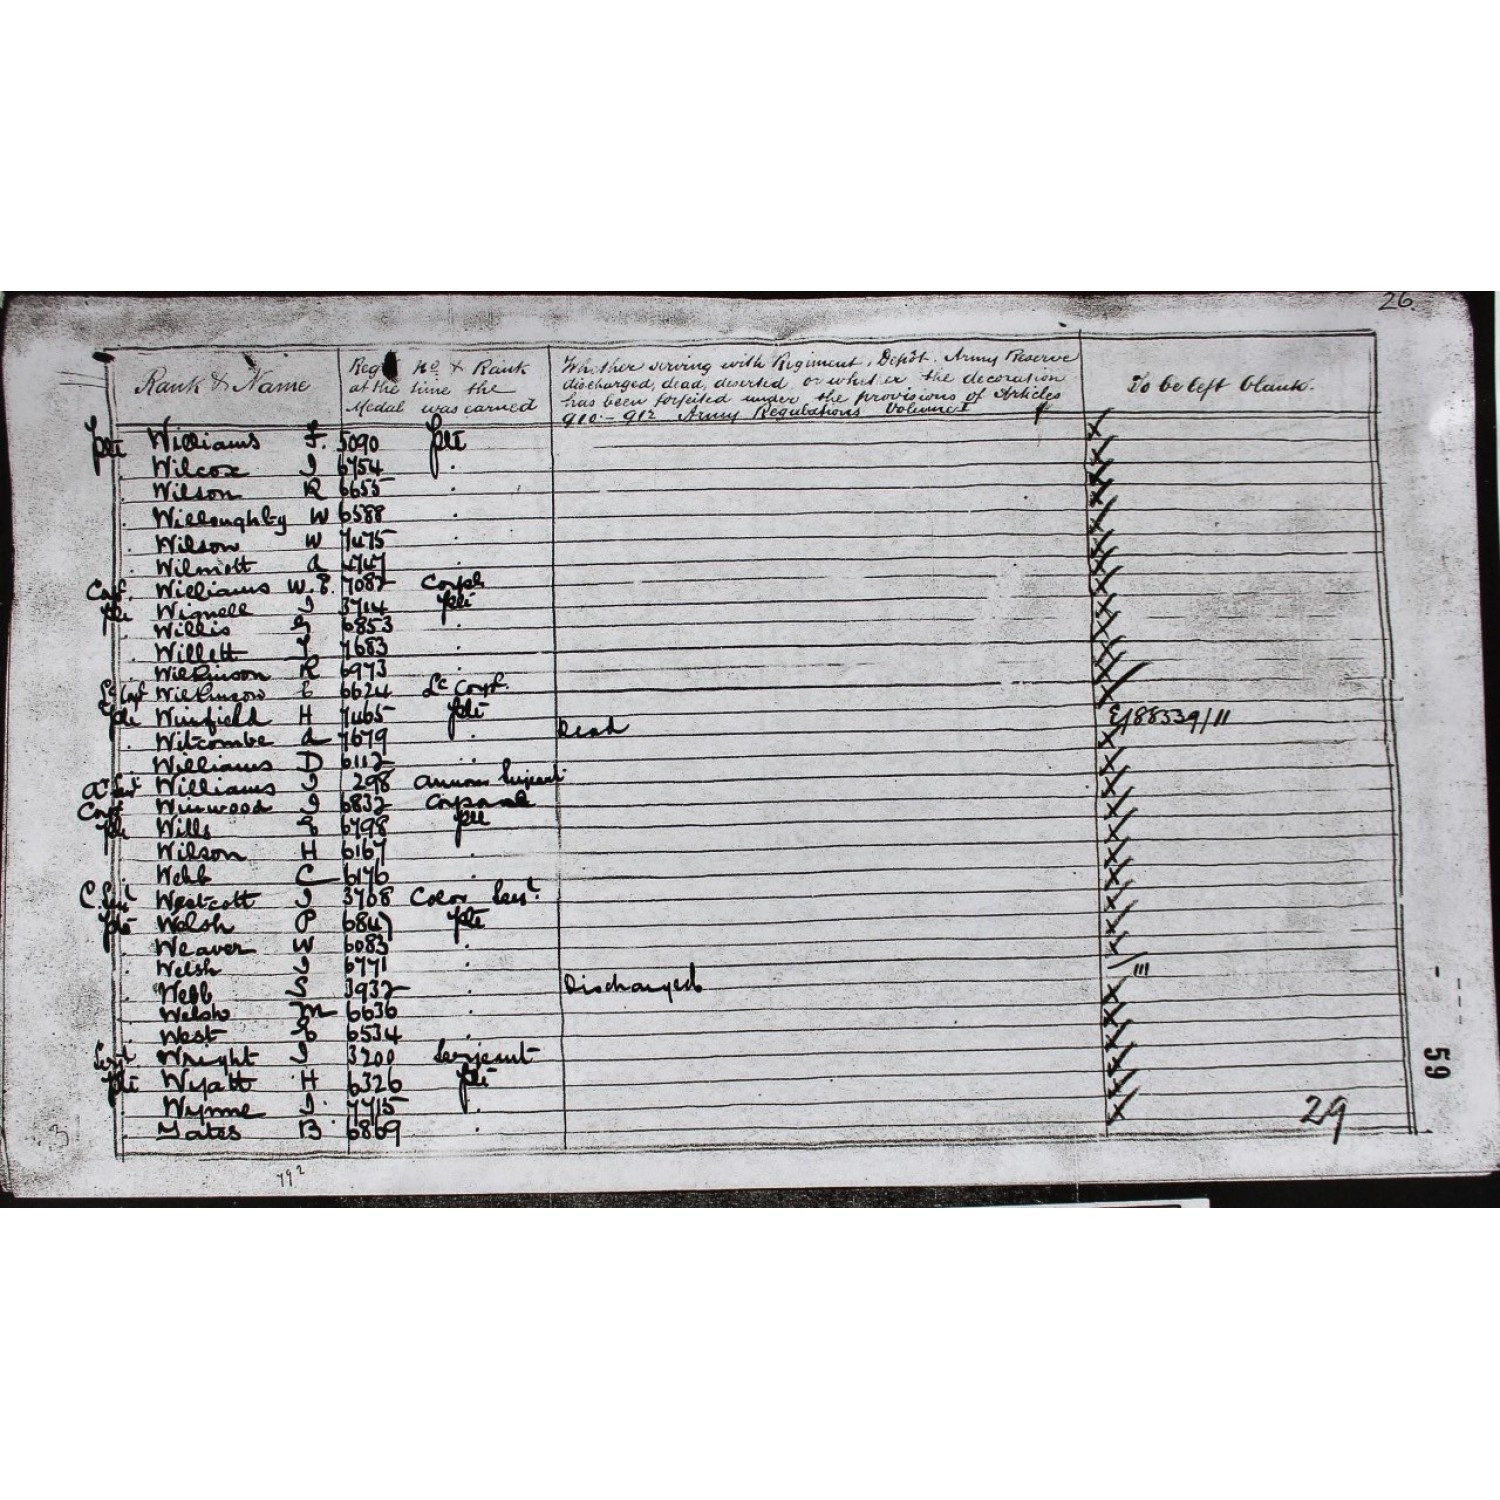 26.
Rank & Name
Reg No & Rank
at the time the
Medal was earned
Whether serving with Regiment, Depôt, Army Reserve
discharged, dead, deserted or whether the decoration
has been forfeited under the provisions of Articles
910-912 Army Regulations Volume I
To be left blank.
Pte Williams F. 5090 Pte
Wilcox J 6754
Wilson R 6655
Willoughby W 6588
Wilson W 7475
Wilmott A 4747
Corp. Williams W.E. 7082 Corpl
Pte Wignell J 3714 Pte
Willis G 6853
Willett J 7683
Wilkinson R 6973
Lc Corp Wilkinson E 6624 Lc Corp.
Pte Winfield H 7465 Pte E/88539/11
Witcombe A 7679 Dead
Williams D 6112
Williams J 298
Corp Winwood J 6832 Corporal
Pte Wills G 6798 Pte
Wilson H 6167
Webb C 6176
C. Sert Westcott J 3708 Color Sert.
Pte Welsh P 6847 Pte
Weaver W 6083
Welsh J 6771
Webb S 3932 Discharged
Welsh M 6636
West G 6534
Serjt Wright J 3200 Serjeant
Pte Wyatt H 6326 Pte
Wynne J. 7715
Yates B 6869
29
59
792